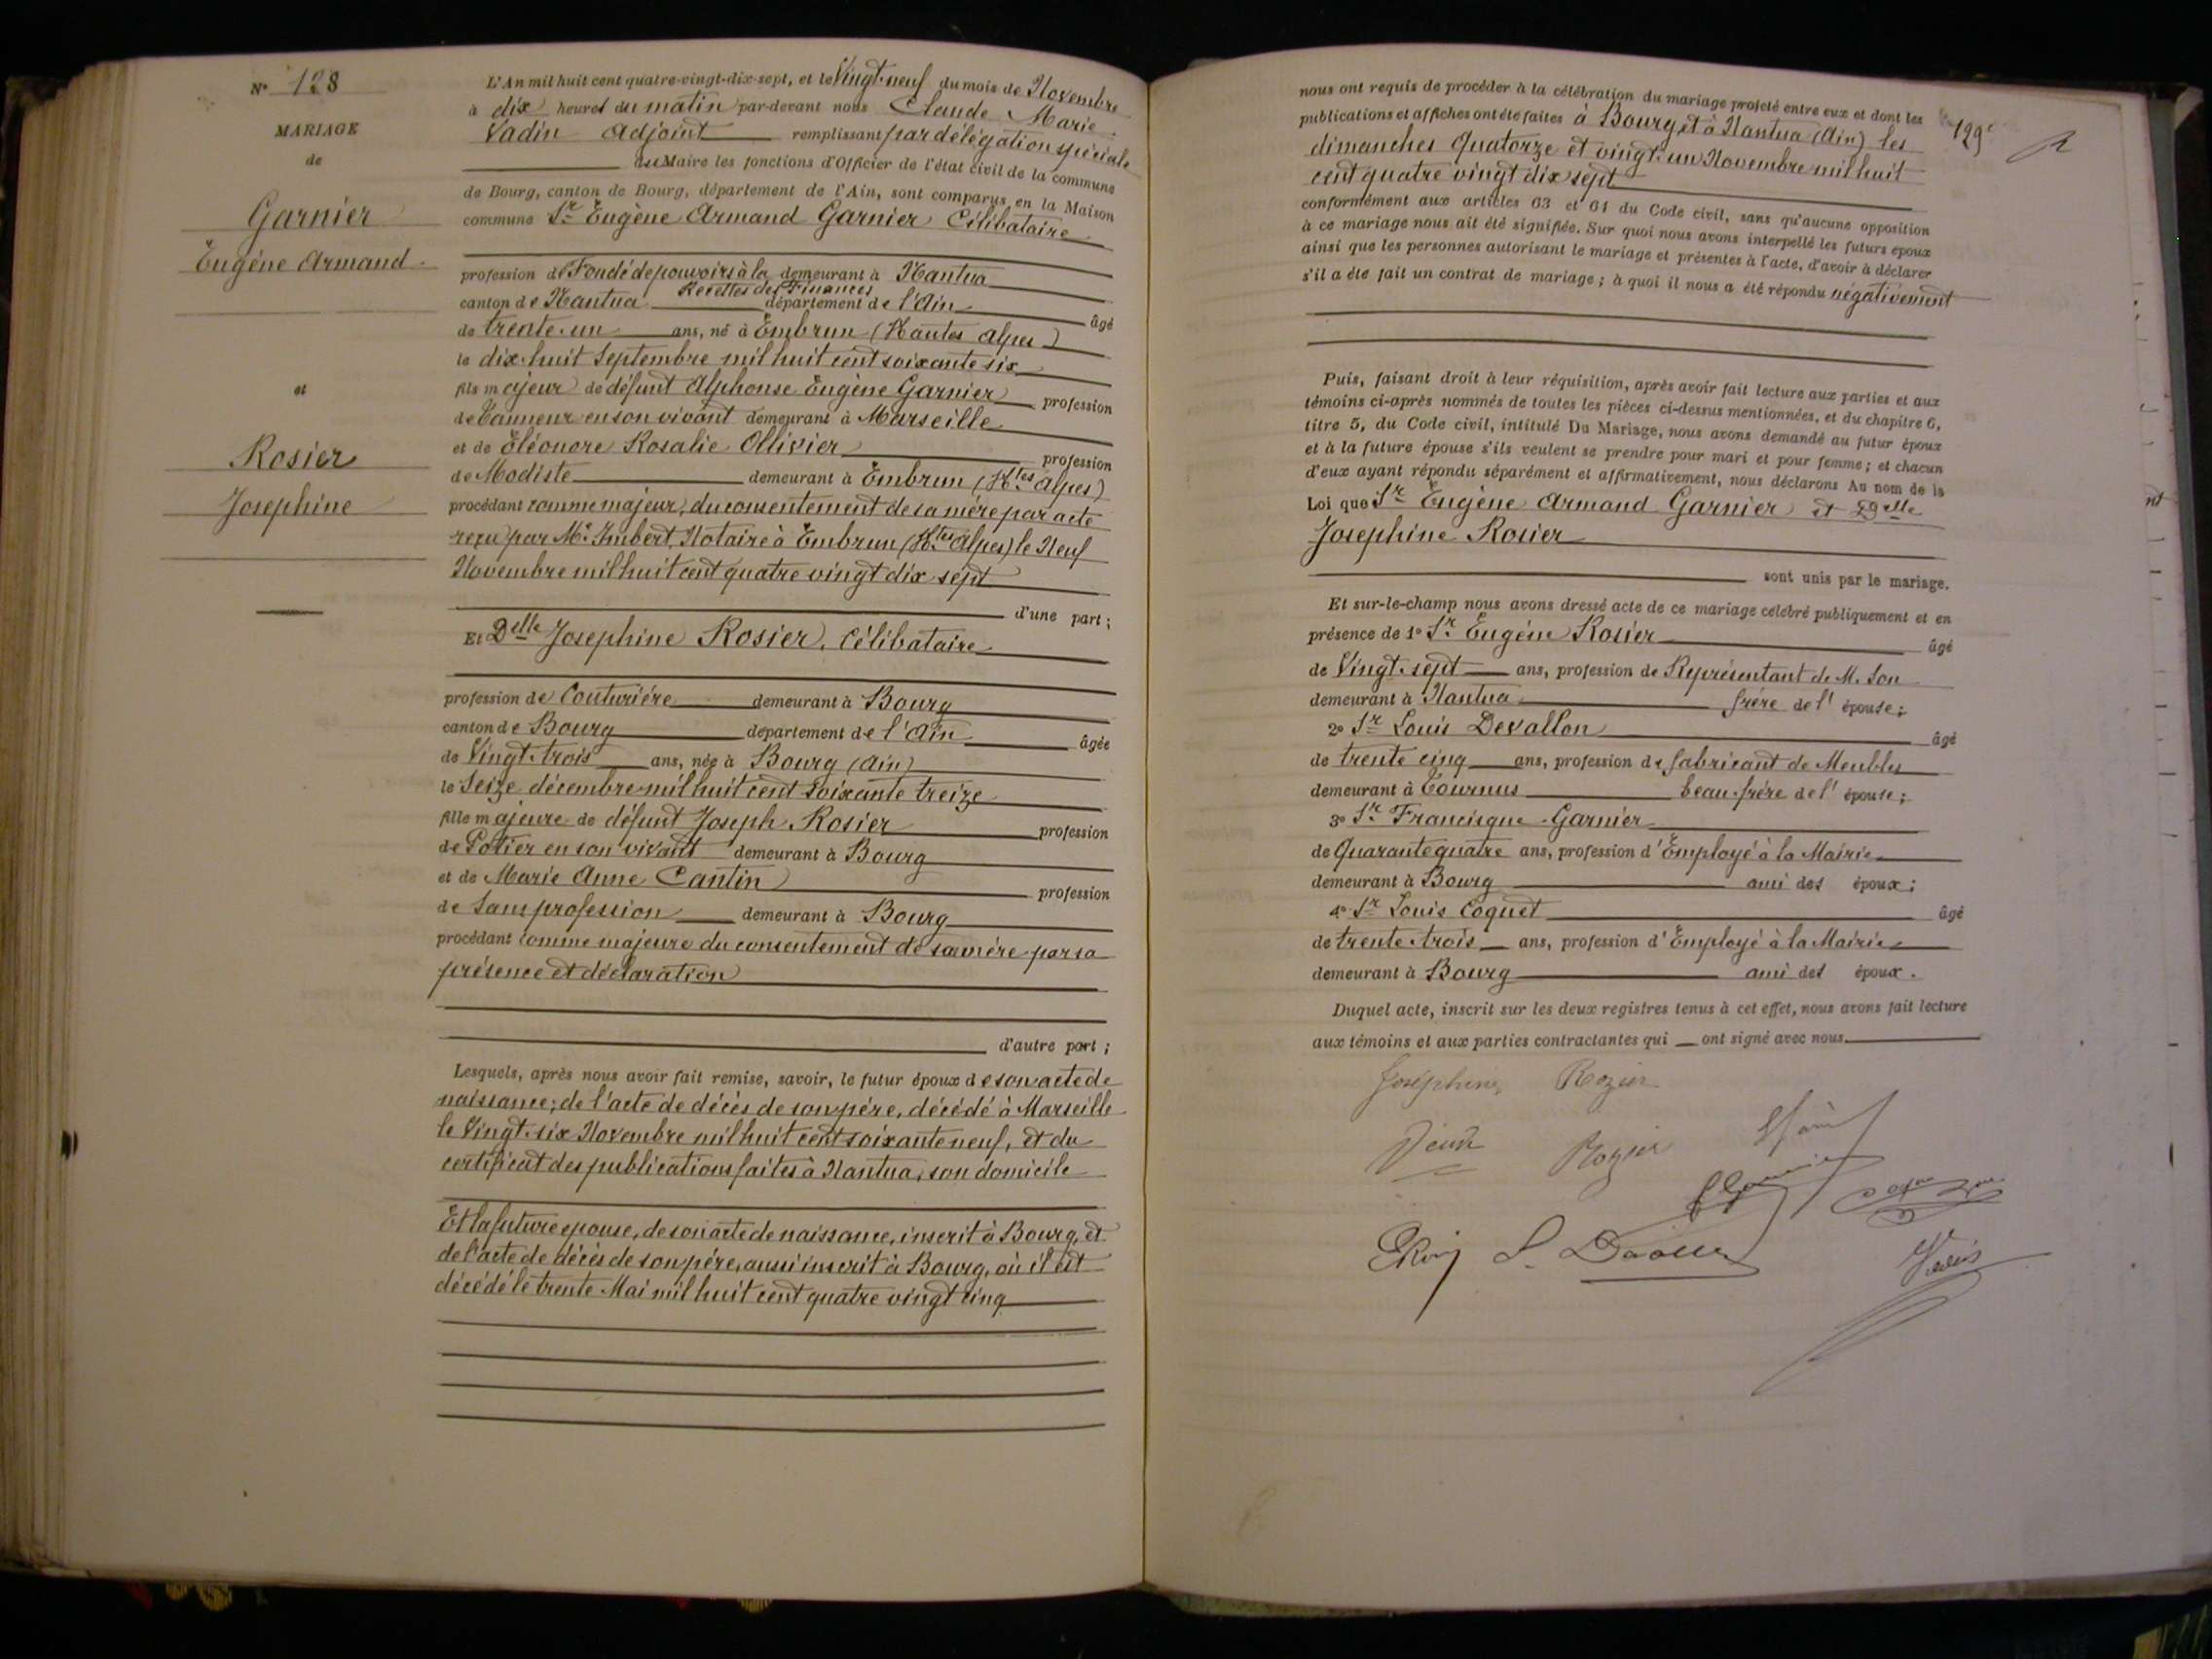 N° 128
MARIAGE
de
Garnier
Eugène Armand
et
Rosier
Josephine
L'An mil huit cent quatre-vingt-dix-sept, et le Vingt-neuf du mois de Novembre
à dix heures du matin par-devant nous Claude Marie
Vadin Adjoint remplissant par délégation spéciale
du Maire les fonctions d'Officier de l'état civil de la commune
de Bourg, canton de Bourg, département de l'Ain, sont comparus en la Maison
commune Sr Eugène Armand Garnier Célibataire
profession de Fondé de pouvoirs à la demeurant à Nantua
Recettes des Finances
canton de Nantua département de l'Ain âgé
de trente-un ans, né à Embrun (Hautes Alpes)
le dix-huit Septembre mil huit cent soixante six
fils majeur de défunt Alphonse Eugène Garnier profession
de Tanneur en son vivant demeurant à Marseille
et de Eléonore Rosalie Ollivier profession
de Modiste demeurant à Embrun (Htes Alpes)
procédant comme majeur, du consentement de sa mère par acte
reçu par Me Imbert, Notaire à Embrun (Htes Alpes) le Neuf
Novembre mil huit cent quatre vingt dix sept
d'une part ;
Et Delle Josephine Rosier, Célibataire
profession de Couturière demeurant à Bourg
canton de Bourg département de l'Ain âgée
de Vingt-trois ans, née à Bourg (Ain)
le Seize décembre mil huit cent soixante treize
fille majeure de défunt Joseph Rosier profession
de Potier en son vivant demeurant à Bourg
et de Marie Anne Cantin profession
de Sans profession demeurant à Bourg
procédant comme majeure du consentement de sa mère par sa
présence et déclaration
d'autre part ;
Lesquels, après nous avoir fait remise, savoir, le futur époux de son acte de
naissance; de l'acte de décès de son père, décédé à Marseille
le Vingt-six Novembre mil huit cent soixante neuf, et du
certificat des publications faites à Nantua, son domicile
Et la future epouse, de son acte de naissance, inscrit à Bourg, et
de l'acte de décès de son père, aussi inscrit à Bourg, où il est
décédé le trente Mai mil huit cent quatre vingt cinq
129e
nous ont requis de procéder à la célébration du mariage projeté entre eux et dont les
publications et affiches ont été faites à Bourg et à Nantua (Ain) les
dimanches Quatorze et vingt-un Novembre mil huit
cent quatre vingt dix sept
conformément aux articles 63 et 64 du Code civil, sans qu'aucune opposition
à ce mariage nous ait été signifiée. Sur quoi nous avons interpellé les futurs époux
ainsi que les personnes autorisant le mariage et présentes à l'acte, d'avoir à déclarer
s'il a été fait un contrat de mariage ; à quoi il nous a été répondu négativement
Puis, faisant droit à leur réquisition, après avoir fait lecture aux parties et aux
témoins ci-après nommés de toutes les pièces ci-dessus mentionnées, et du chapitre 6,
titre 5, du Code civil, intitulé Du Mariage, nous avons demandé au futur époux
et à la future épouse s'ils veulent se prendre pour mari et pour femme ; et chacun
d'eux ayant répondu séparément et affirmativement, nous déclarons Au nom de la
Loi que Sr Eugène Armand Garnier et Delle
Josephine Rosier
sont unis par le mariage.
Et sur-le-champ nous avons dressé acte de ce mariage célébré publiquement et en
présence de 1° Sr Eugène Rosier âgé
de Vingt-sept ans, profession de Représentant de M. Son
demeurant à Nantua frère de l'épouse ;
2° Sr Louis Devallon âgé
de trente cinq ans, profession de fabricant de Meubles
demeurant à Tournus beau-frère de l'épouse ;
3° Sr Francisque Garnier
de Quarante quatre ans, profession d'Employé à la Mairie
demeurant à Bourg ami des époux ;
4° Sr Louis Coquet âgé
de trente-trois ans, profession d'Employé à la Mairie
demeurant à Bourg ami des époux.
Duquel acte, inscrit sur les deux registres tenus à cet effet, nous avons fait lecture
aux témoins et aux parties contractantes qui ont signé avec nous
Joséphine Rozier
Veuve Rozier
Vadin